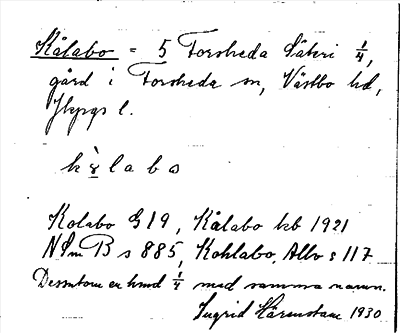 Kålabo = 5 Forsheda Säteri 1/4,
gård i Forsheda sn, Västbo hd,
Jkpgs l.
k ò̤ l a b o
Kolabo G 19, Kålabo kb 1921
NSm B s 885, Kohlabo, Allv s 117
Dessutom en hmd 1/4 med samma namn.
Ingrid Härenstam 1930